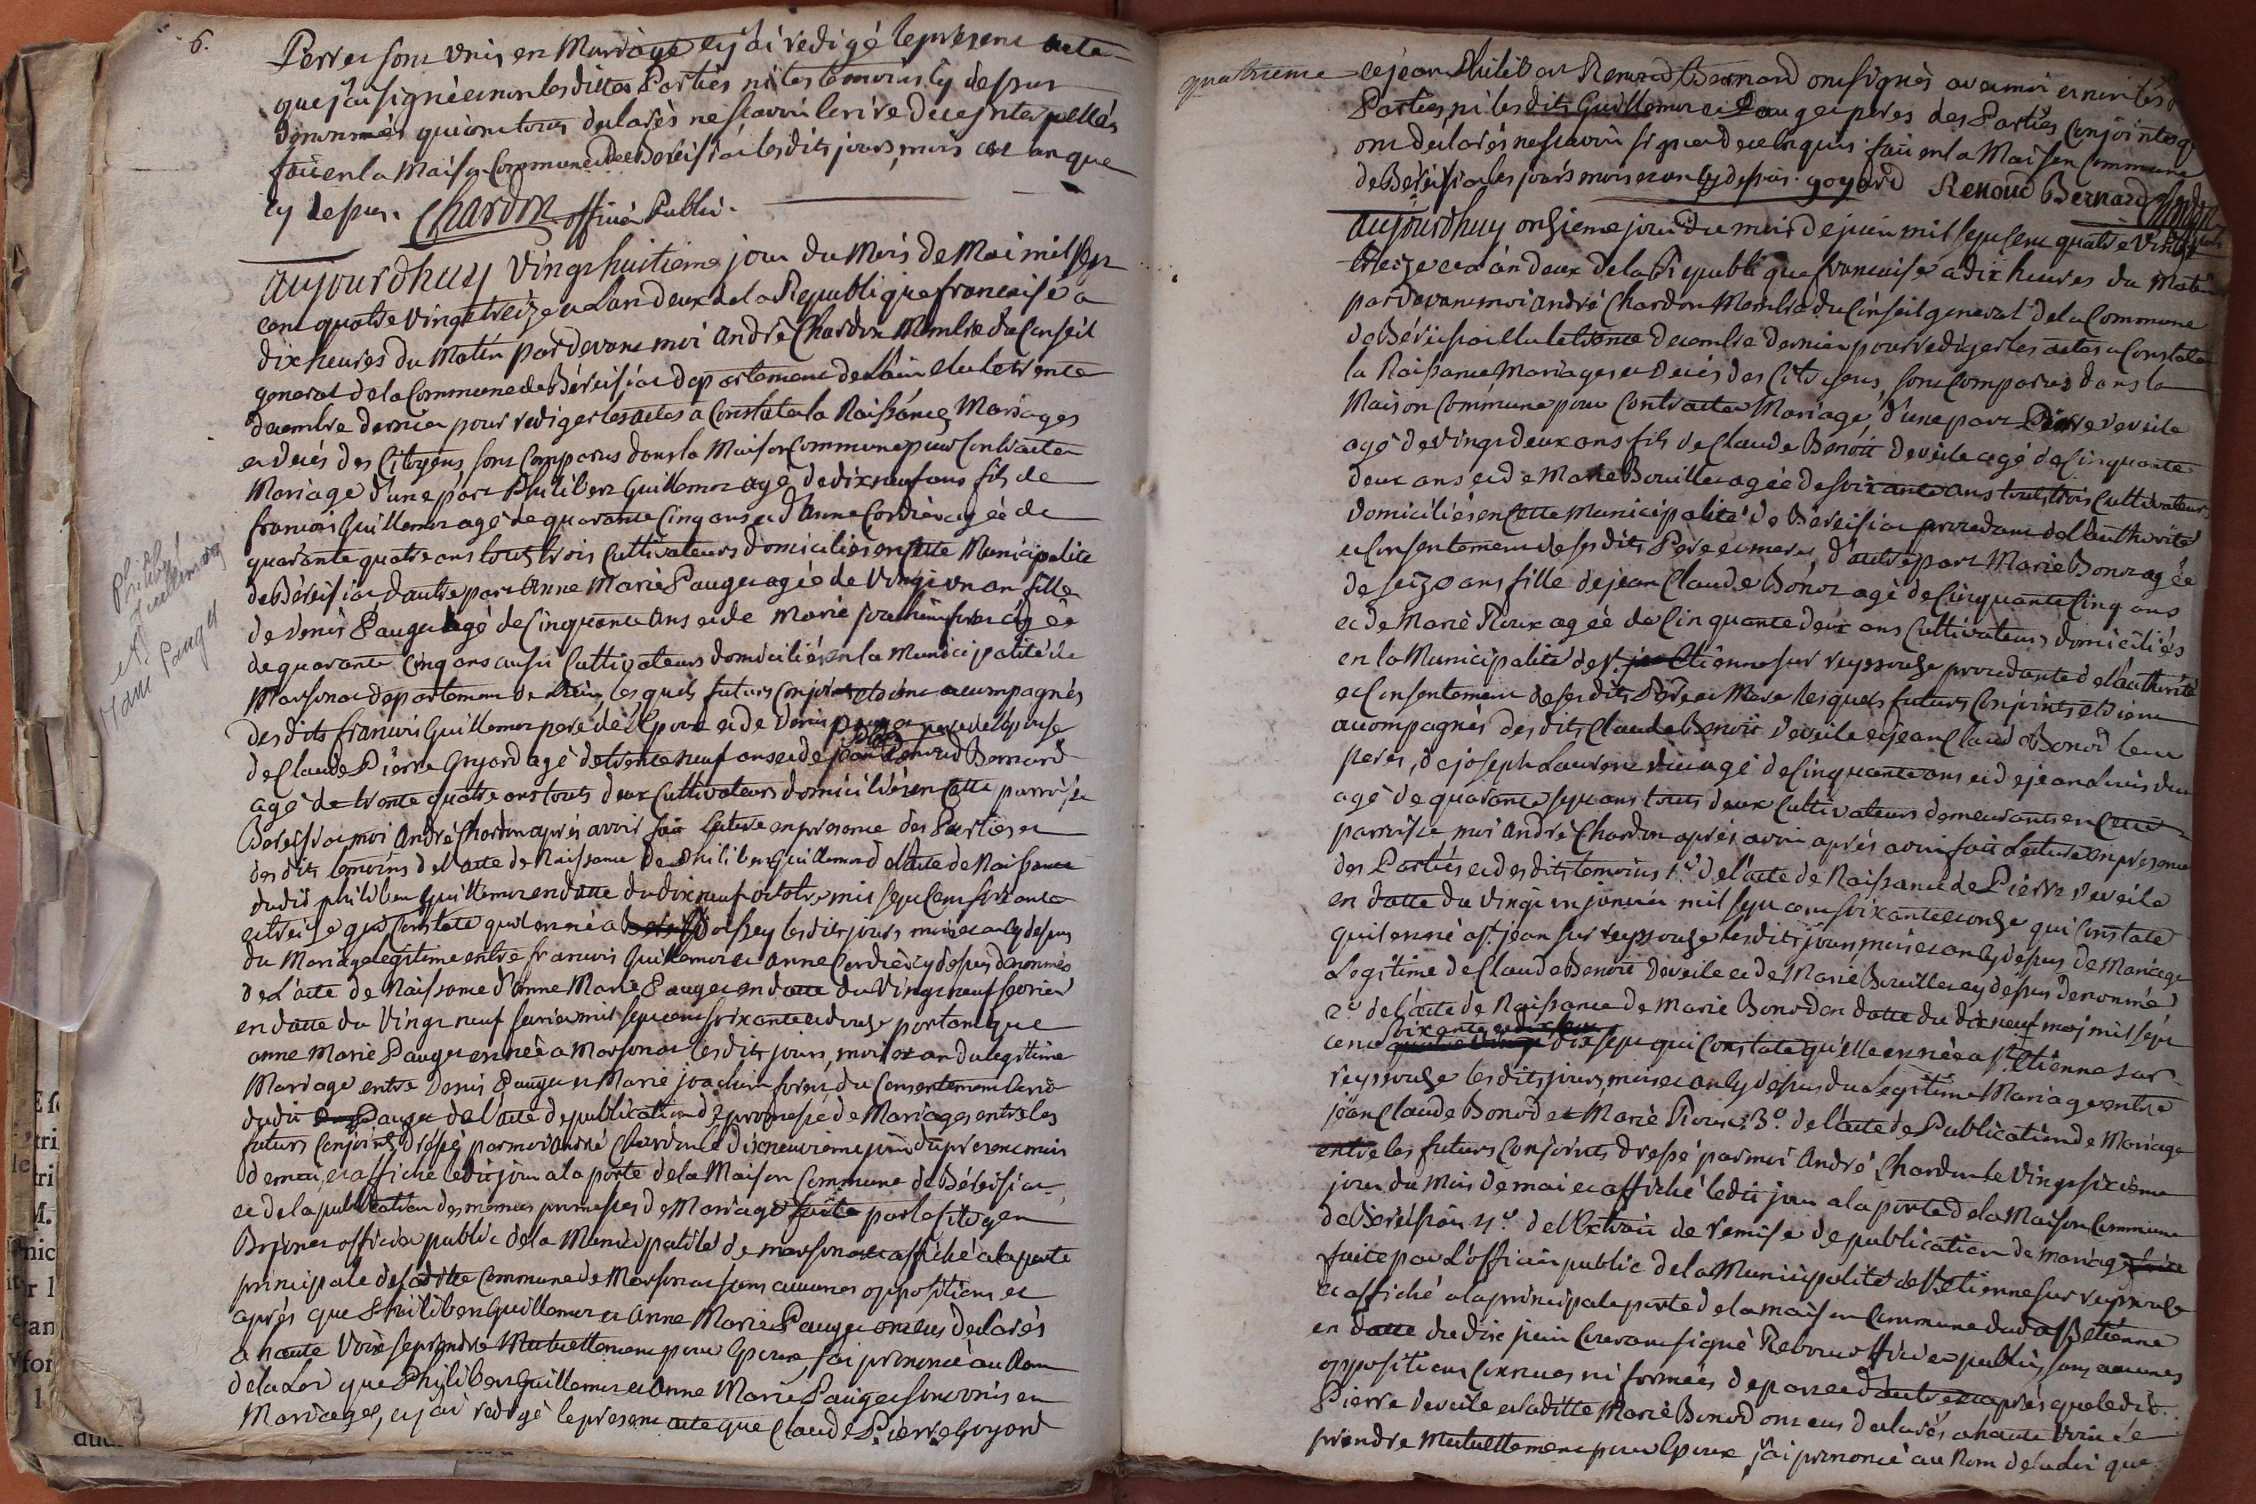 6.
Perret sont unis en Mariage et j'ai redigé le present acte
que j'ai signé et non lesdittes Parties ni les temoins cy dessus
denommés qui ont tous declarés ne scavoir lecrire de ce enterpellés
fait en la Maison Commune de Bereisiat lesdits jours, mois et an que
cy dessus. Chardon officier Public.
aujourdhuy vingt huitieme jour du Mois de Mai mil sept
cent quatre vingt treize et L'an deux de la Republique francaise a
dix heures du Matin par devant moi andré Chardon Membre du Conseil
general de la Commune de Béreisiat departement de L'ain elu le trente
decembre dernier pour rediger les actes a Constater la Naissance, Mariages
et decés des Citoyens sont Comparus dans la Maison Commune pour Contracter
Mariage d'une part Philibert Guillemot agé de dix neuf ans fils de
francois Guillemot agé de quarante Cinq ans et d'Anne Cordier agée de
quarante quatre ans tous trois Cultivateurs domiciliés en cette Municipalite
de Béreisiat d'autre part Anne Marie Pauget agée de Vingt un an fille
de Denis Pauget agé de Cinquante Ans et de Marie joachim foret agée
de quarante Cinq ans aussi Cultivateurs domiciliés en la Municipalité de
Marsonas departement de L'ain, les quels futurs Conjoints etoient acompagnés
des dits francois Guillemot pere de l'Epoux et de Denis Pauget pere de l'épouse
de Claude Pierre Goyard agé de trente neuf ans et de jean Renoud Bernard
agé de trente quatre ans touts deux Cultivateurs domiciliés en Cette parroisse
Bereisiat moi André Chardon aprés avoir fait Lecture en presence des Parties et
des dits temoins de l'acte de Naissance de Philibert Guillemot de l'acte de Naissance
dudit philibert Guillemot en datte du dix neuf octobre mil sept Cent soixante
et treize qui Constate qu'il en né a lesdits jours mois et an cy dessus
du Mariage legitime entre francois Guillemot et anne Cordier cy dessus denommés
de L'acte de Naissance d'anne Marie Pauget en datte du Vingt neuf fevrier
en datte du Vingt neuf fevrier mil sept cent soixante et douze portant que
anne Marie Pauget en née a Marsonas les dits jours, mois et an du legitime
Mariage entre Denis Pauget et Marie joachim foret, du Consentement
dudit Pauget de l'acte de publication de promesse de Mariages entre les
futurs Conjoints dressé par moi André Chardon le dixneuvieme jour du present mois
de mai, et affiché ledit jour a la porte de la Maison Commune de Béreisiat
et de la publication des memes promesses de Mariage faite par le Citoyen
officier public de la Municipalité de marsonas et affiché a la porte
principale de laditte Commune de Marsonas sans aucunes oppositions et
aprés que Philibert Guillemot et Anne Marie Pauget ont eus declarés
a haute Voix se prendre Mutuellement pour Epoux, j'ai prononcé au Nom
de la Loi que Philibert Guillemot et Anne Marie Pauget sont unis en
Mariage, et j'ai redigé le present acte que Claude Pierre Goyard
Philibt
Guillemot
et
Marie Pauget
quatrieme
et jean Philibert Renoud Bernard ont signés avec moi et non les
Parties ni les dits Guillemot et Pauget peres des Parties Conjointes
ont declarés ne scavoir signer de ce enquis fait en la Maison Commune
de Béreisiat les jours mois et an cy dessus. goyard Renoud Bernard Chardon
aujourdhuy onzieme jour du mois de juin mil sept cent quatre Vingt
treize et l'an deux de la Republique francaise a dix heures du Matin
par devant moi andré Chardon Membre du Conseil general de la Commune
de Béreisiat elu le trente decembre dernier pour rediger les actes a Constater
la Naissance Mariages et Decés des Citoyens, sont Comparus dans la
Maison Commune pour Contracter Mariage, d'une part Pierre Deveile
agé de vingt deux ans fils de Claude Benoit Deveile agé de Cinquante
deux ans et de Marie Bouillet agée de soixante ans touts trois Cultivateurs
domiciliés en Cette Municipalité de Bereisiat procedant de l'authorité
et Consentement de ses dits Pere et mere, d'autre part Marie Bonod agée
de seize ans fille de jean Claude Bonod agé de Cinquante Cinq ans
et de Marie Roux agée de Cinquante deux ans Cultivateurs domiciliés
en la Municipalité de St. Etienne sur reyssouze procedante de l'authorité
et Consentement de ses dits Pere et Mere lesquels futurs Conjoints etoient
acompagnés des dits Claude Benoit Deveile et jean Claude Bonod leur
peres, de joseph Laurent agé de Cinquante ans et de jean Louis
agé de quarante sept ans touts deux Cultivateurs demeurants en Cette
parroisse moi André Chardon aprés avoir aprés avoir fait Lecture en presence
des Parties et des dits temoins 1.º de l'acte de Naissance de Pierre Deveile
en datte du vingt un janvier mil sept cent soixante et onze qui Constate
qu'il en né a St. jean sur reyssouze lesdits jours, mois et an cy dessus de Mariage
Legitime de Claude Benoit Deveile et de Marie Bouillet cy dessus denommés
2.º de l'acte de Naissance de Marie Bonod en datte du dix neuf mai mil sept
cent soixante et dix sept qui Constate qu'elle en née a St. Etienne sur
reyssouze les dits jours mois et an cy dessus du Legitime Mariage entre
jean Claude Bonod et Marie Roux; 3.º de l'acte de Publication de Mariage
entre les futurs Conjoints dressé par moi André Chardon le Vingt sixieme
jour du Mois de mai et affiché ledit jour a la porte de la Maison Commune
de Béreisiat 4.º de l'Extrait de remise de publication de mariage faite
faite par L'officier public de la Municipalité de St. Etienne sur reyssouze
et affiché a la principale porte de la maison Commune dudit St Etienne
en datte du dix juin Courant signé officier public, sans aucunes
oppositions Connues ni formées de part et d'autre et aprés que ledit
Pierre Deveile et laditte Marie Bonod ont eus declarés a haute voix se
prendre Mutuellement pour Epoux j'ai prononcé au Nom de la Loi que